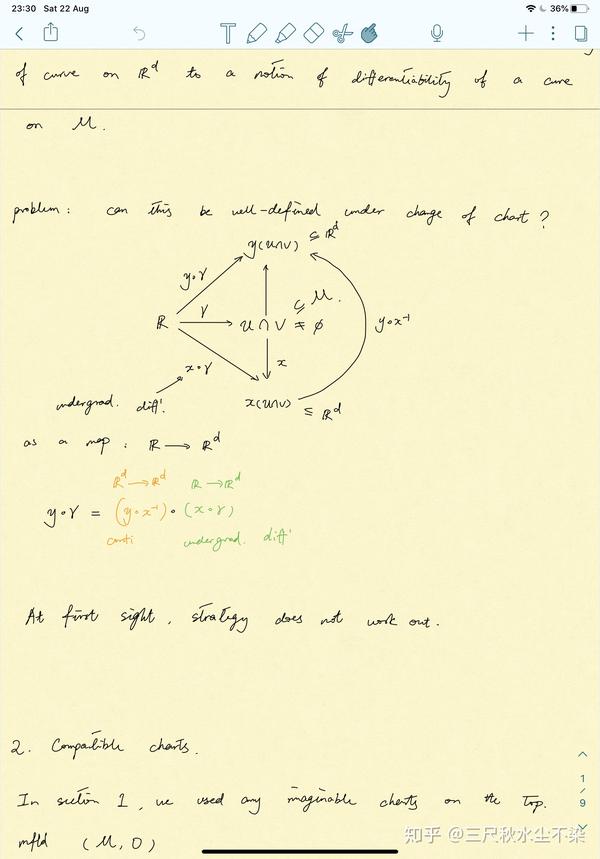 23:30 Sat 22 Aug 36%
T
of curve on ℝᵈ to a notion of differentiability of a curve
on M.
problem: can this be well-defined under change of chart?
y(U∩V) ⊆ ℝᵈ
y∘γ
ℝ γ U∩V ≠ ∅ ⊆ M. y∘x⁻¹
x
x∘γ
undergrad. diff'. x(U∩V) ⊆ ℝᵈ
as a map: ℝ → ℝᵈ
ℝᵈ → ℝᵈ ℝ → ℝᵈ
y∘γ = (y∘x⁻¹)∘(x∘γ)
conti undergrad. diff'
At first sight, strategy does not work out.
2. Compatible charts.
In section 1, we used any imaginable charts on the Top.
mfld (M, O)
1
/
9
知乎 @三尺秋水尘不染